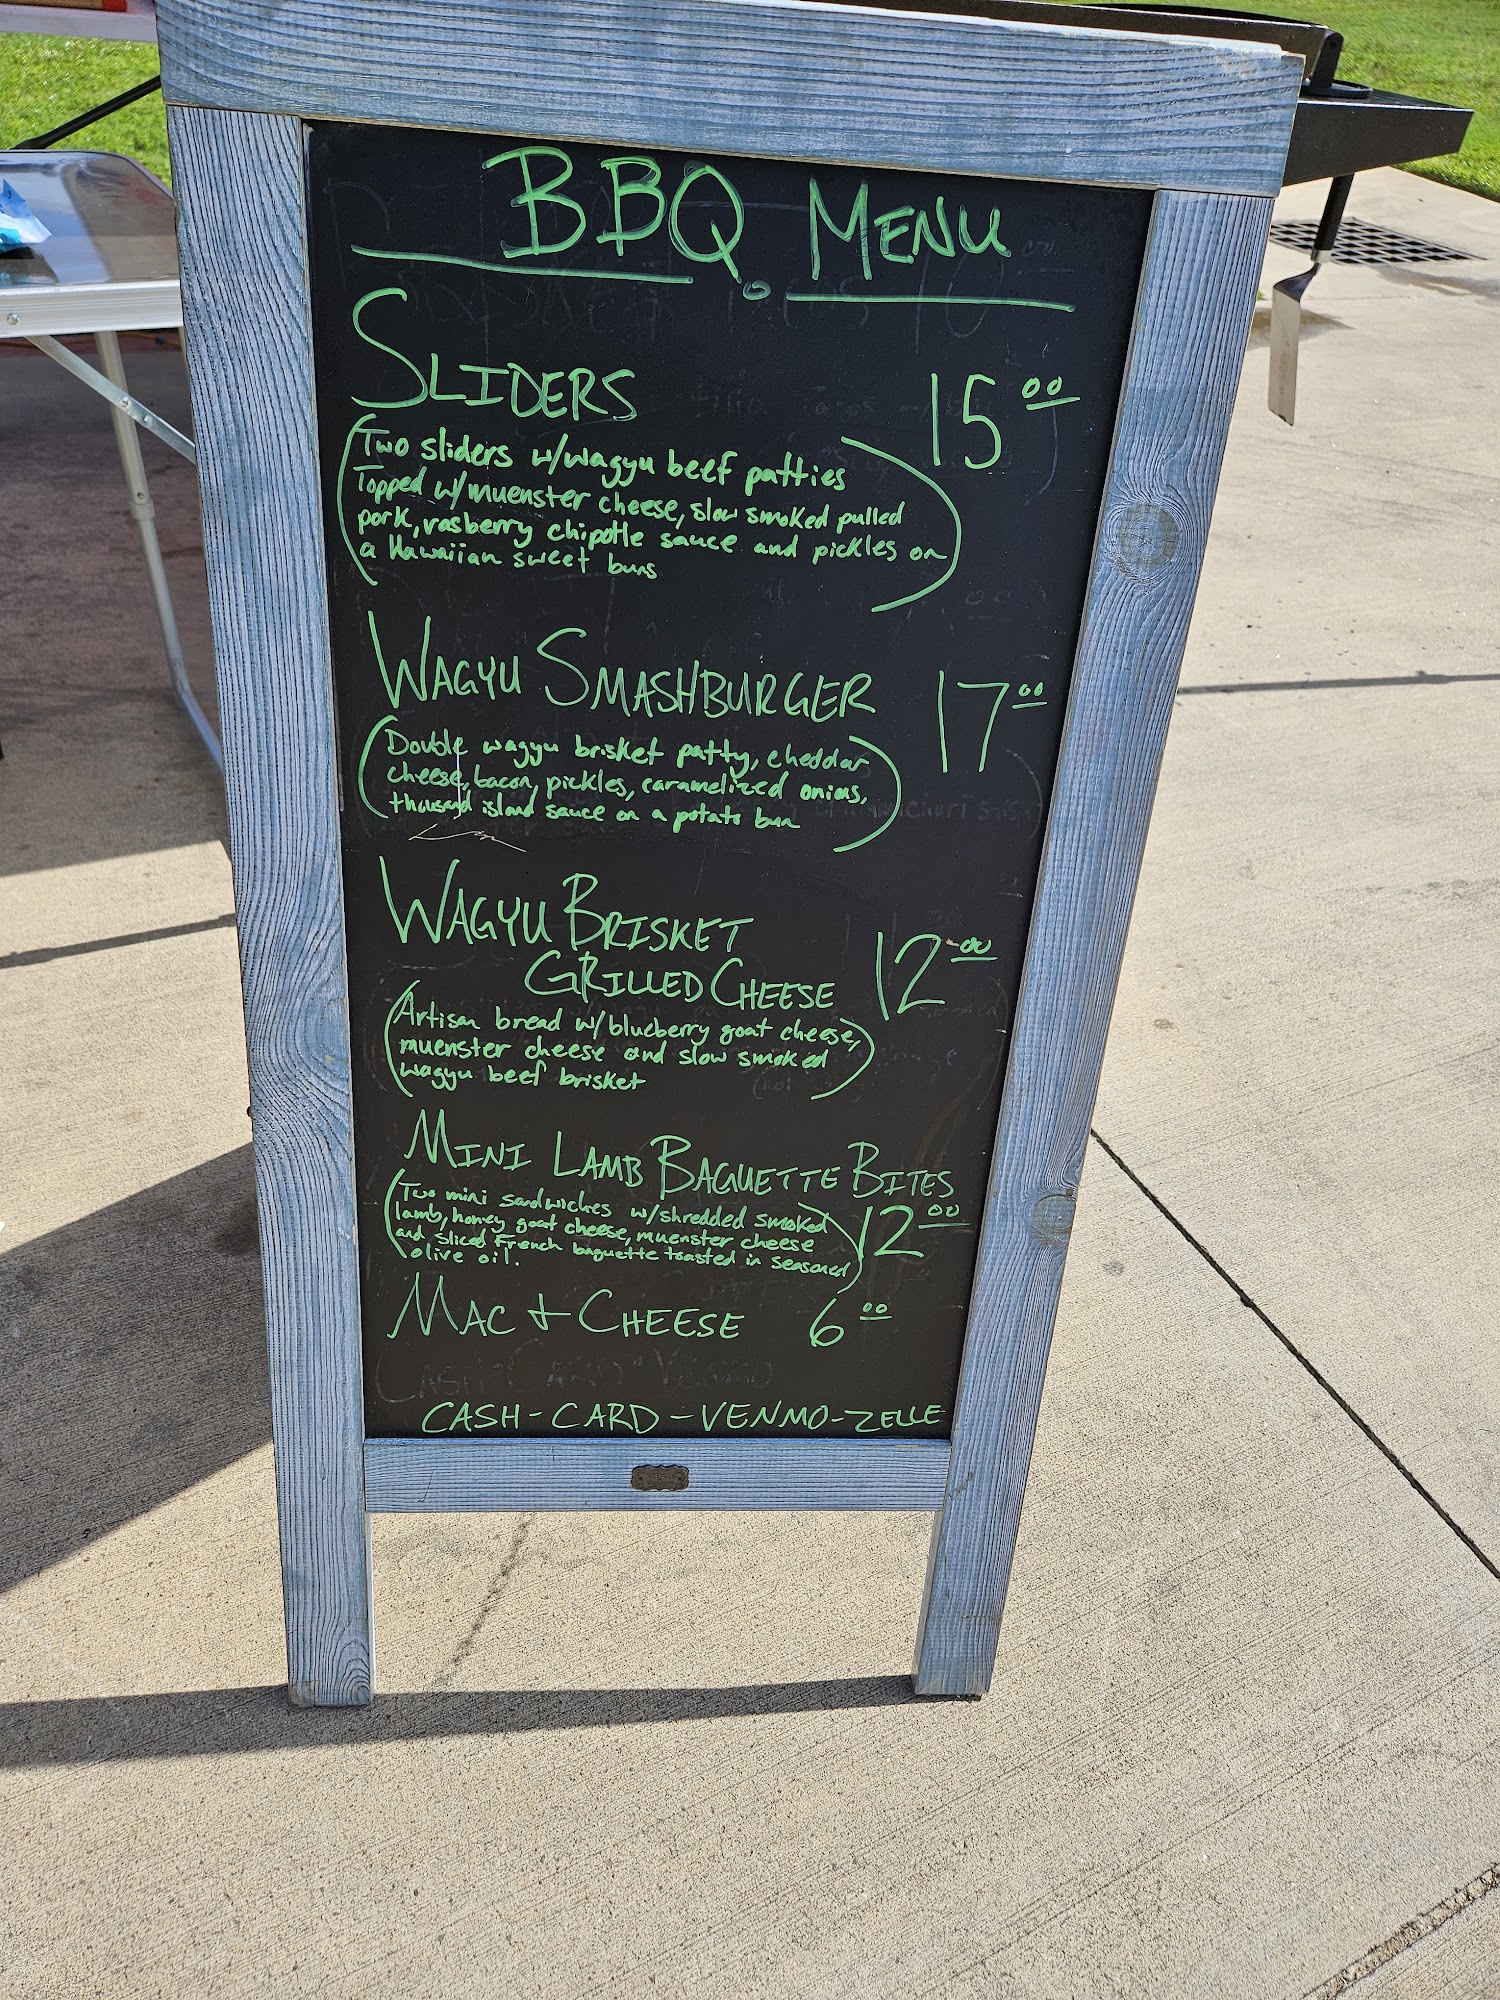 BBQ MENU
SLIDERS 15.00
(Two sliders w/wagyu beef patties
Topped w/muenster cheese, slow smoked pulled
pork, rasberry chipotle sauce and pickles on
a Hawaiian sweet buns)
WAGYU SMASHBURGER 17.00
(Double wagyu brisket patty, cheddar
cheese, bacon, pickles, caramelized onions,
thousand island sauce on a potato bun)
WAGYU BRISKET
GRILLED CHEESE 12.00
(Artisan bread w/blueberry goat cheese,
muenster cheese and slow smoked
wagyu beef brisket)
MINI LAMB BAGUETTE BITES
(Two mini sandwiches w/shredded smoked
lamb, honey goat cheese, muenster cheese
and sliced French baguette toasted in seasoned
olive oil.) 12.00
MAC + CHEESE 6.00
CASH-CARD-VENMO-ZELLE